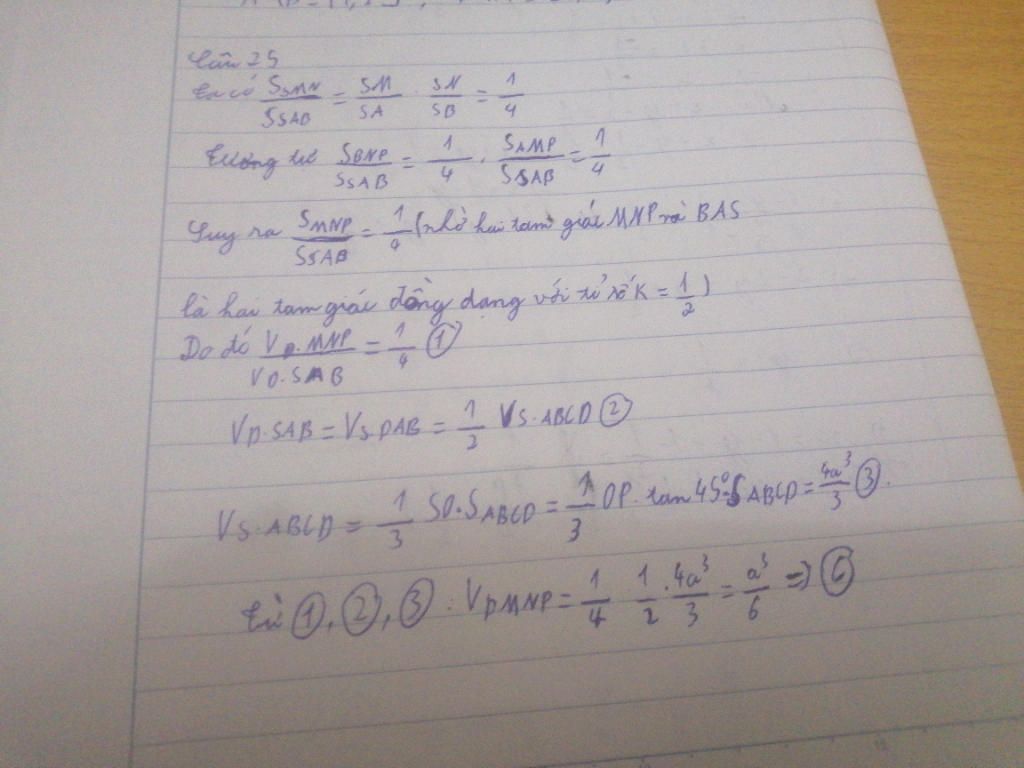 Câu 25
Ta có S_SMN/S_SAB = SM/SA . SN/SB = 1/4
Tương tự S_BNP/S_SAB = 1/4 . S_AMP/S_SAB = 1/4
Suy ra S_MNP/S_SAB = 1/4 (nhờ hai tam giác MNP và BAS
là hai tam giác đồng dạng với tỉ số K = 1/2)
Do đó V_D.MNP/V_D.SAB = 1/4 ①
V_D.SAB = V_S.DAB = 1/2 V_S.ABCD ②
V_S.ABCD = 1/3 SO.S_ABCD = 1/3 OP. tan 45°.S_ABCD = 4a³/3 ③.
Từ ①, ②, ③ : V_DMNP = 1/4 1/2 . 4a³/3 = a³/6 => Ⓒ